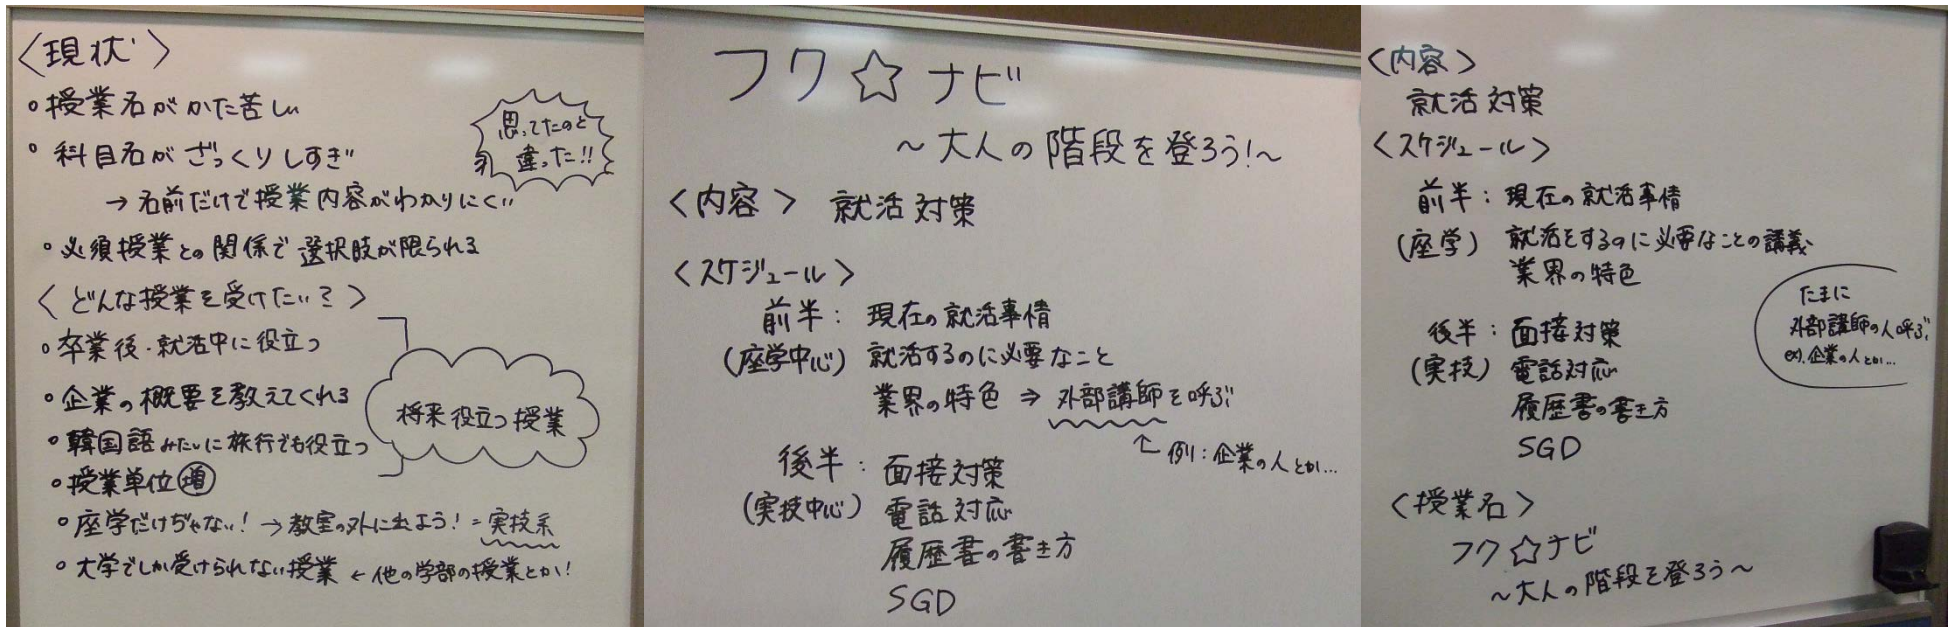 〈現状〉
・授業名がかた苦しい
・科目名がざっくりしすぎ
→名前だけで授業内容がわかりにくい
思ってたのと
違った!!
・必須授業との関係で選択肢が限られる
〈どんな授業を受けたい?〉
・卒業後・就活中に役立つ
・企業の概要を教えてくれる
・韓国語みたいに旅行でも役立つ
・授業単位増
・座学だけぢゃない!→教室の外に出よう!=実技系
・大学でしか受けられない授業←他の学部の授業とか!
将来役立つ授業
フク☆ナビ
~大人の階段を登ろう!~
<内容> 就活対策
<スケジュール>
前半:現在の就活事情
(座学中心) 就活するのに必要なこと
業界の特色⇒外部講師を呼ぶ
←例:企業の人とか…
後半:面接対策
(実技中心) 電話対応
履歴書の書き方
SGD
<内容>
就活対策
<スケジュール>
前半:現在の就活事情
(座学) 就活をするのに必要なことの講義
業界の特色
たまに
外部講師の人呼ぶ
ex).企業の人とか…
後半:面接対策
(実技) 電話対応
履歴書の書き方
SGD
<授業名>
フク☆ナビ
~大人の階段を登ろう~